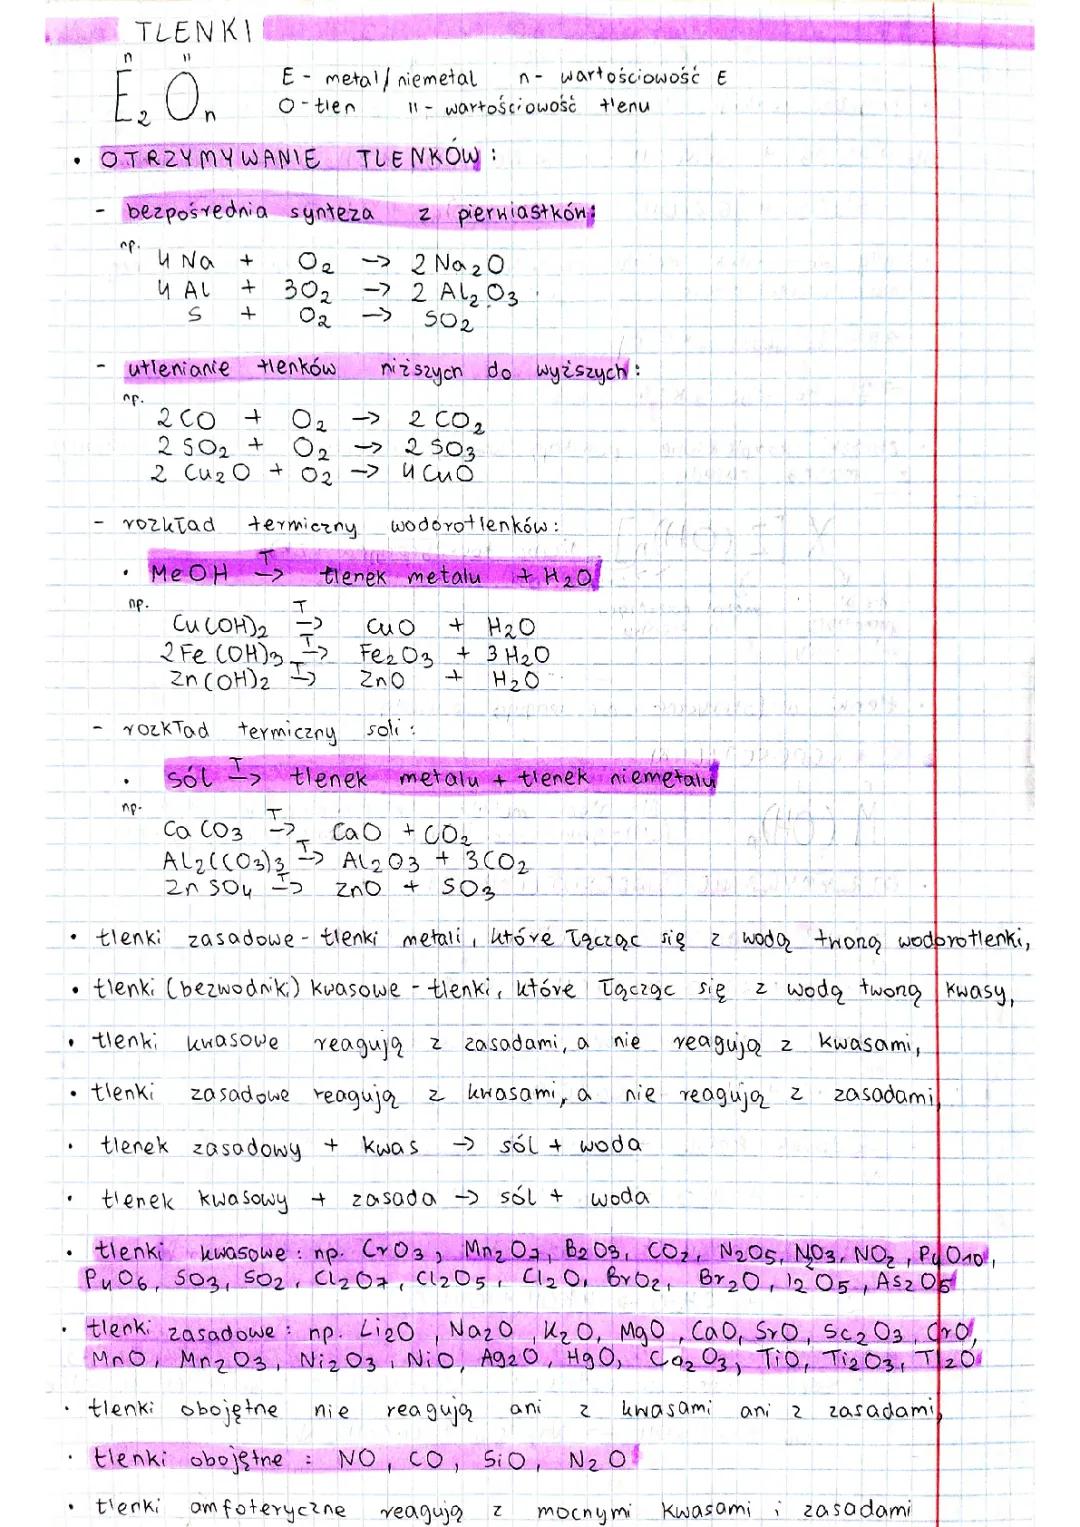 TLENKI
n II
E₂ Oₙ
E - metal/niemetal n - wartościowość E
O - tlen II - wartościowość tlenu
• OTRZYMYWANIE TLENKÓW:
- bezpośrednia synteza z pierwiastków:
np.
4 Na + O₂ -> 2 Na₂O
4 Al + 3O₂ -> 2 Al₂O₃
S + O₂ -> SO₂
- utlenianie tlenków niższych do wyższych:
np.
2 CO + O₂ -> 2 CO₂
2 SO₂ + O₂ -> 2 SO₃
2 Cu₂O + O₂ -> 4 CuO
- rozkład termiczny wodorotlenków:
• MeOH T-> tlenek metalu + H₂O
np.
Cu(OH)₂ T-> CuO + H₂O
2Fe(OH)₃ T-> Fe₂O₃ + 3H₂O
Zn(OH)₂ T-> ZnO + H₂O
- rozkład termiczny soli:
• sól T-> tlenek metalu + tlenek niemetalu
np.
CaCO₃ T-> CaO + CO₂
Al₂(CO₃)₃ T-> Al₂O₃ + 3CO₂
ZnSO₄ T-> ZnO + SO₃
• tlenki zasadowe - tlenki metali, które łącząc się z wodą tworzą wodorotlenki,
• tlenki (bezwodniki) kwasowe - tlenki, które łącząc się z wodą tworzą kwasy,
• tlenki kwasowe reagują z zasadami, a nie reagują z kwasami,
• tlenki zasadowe reagują z kwasami, a nie reagują z zasadami,
• tlenek zasadowy + kwas -> sól + woda
• tlenek kwasowy + zasada -> sól + woda
• tlenki kwasowe: np. CrO₃, Mn₂O₇, B₂O₃, CO₂, N₂O₅, NO₃, NO₂, P₄O₁₀,
P₄O₆, SO₃, SO₂, Cl₂O₇, Cl₂O₅, Cl₂O, BrO₂, Br₂O, I₂O₅, As₂O₅
• tlenki zasadowe: np. Li₂O, Na₂O, K₂O, MgO, CaO, SrO, Sc₂O₃, CrO,
MnO, Mn₂O₃, Ni₂O₃, NiO, Ag₂O, HgO, Co₂O₃, TiO, Ti₂O₃, Tl₂O
• tlenki obojętne nie reagują ani z kwasami ani z zasadami,
• tlenki obojętne: NO, CO, SiO, N₂O
• tlenki amfoteryczne reagują z mocnymi kwasami i zasadami